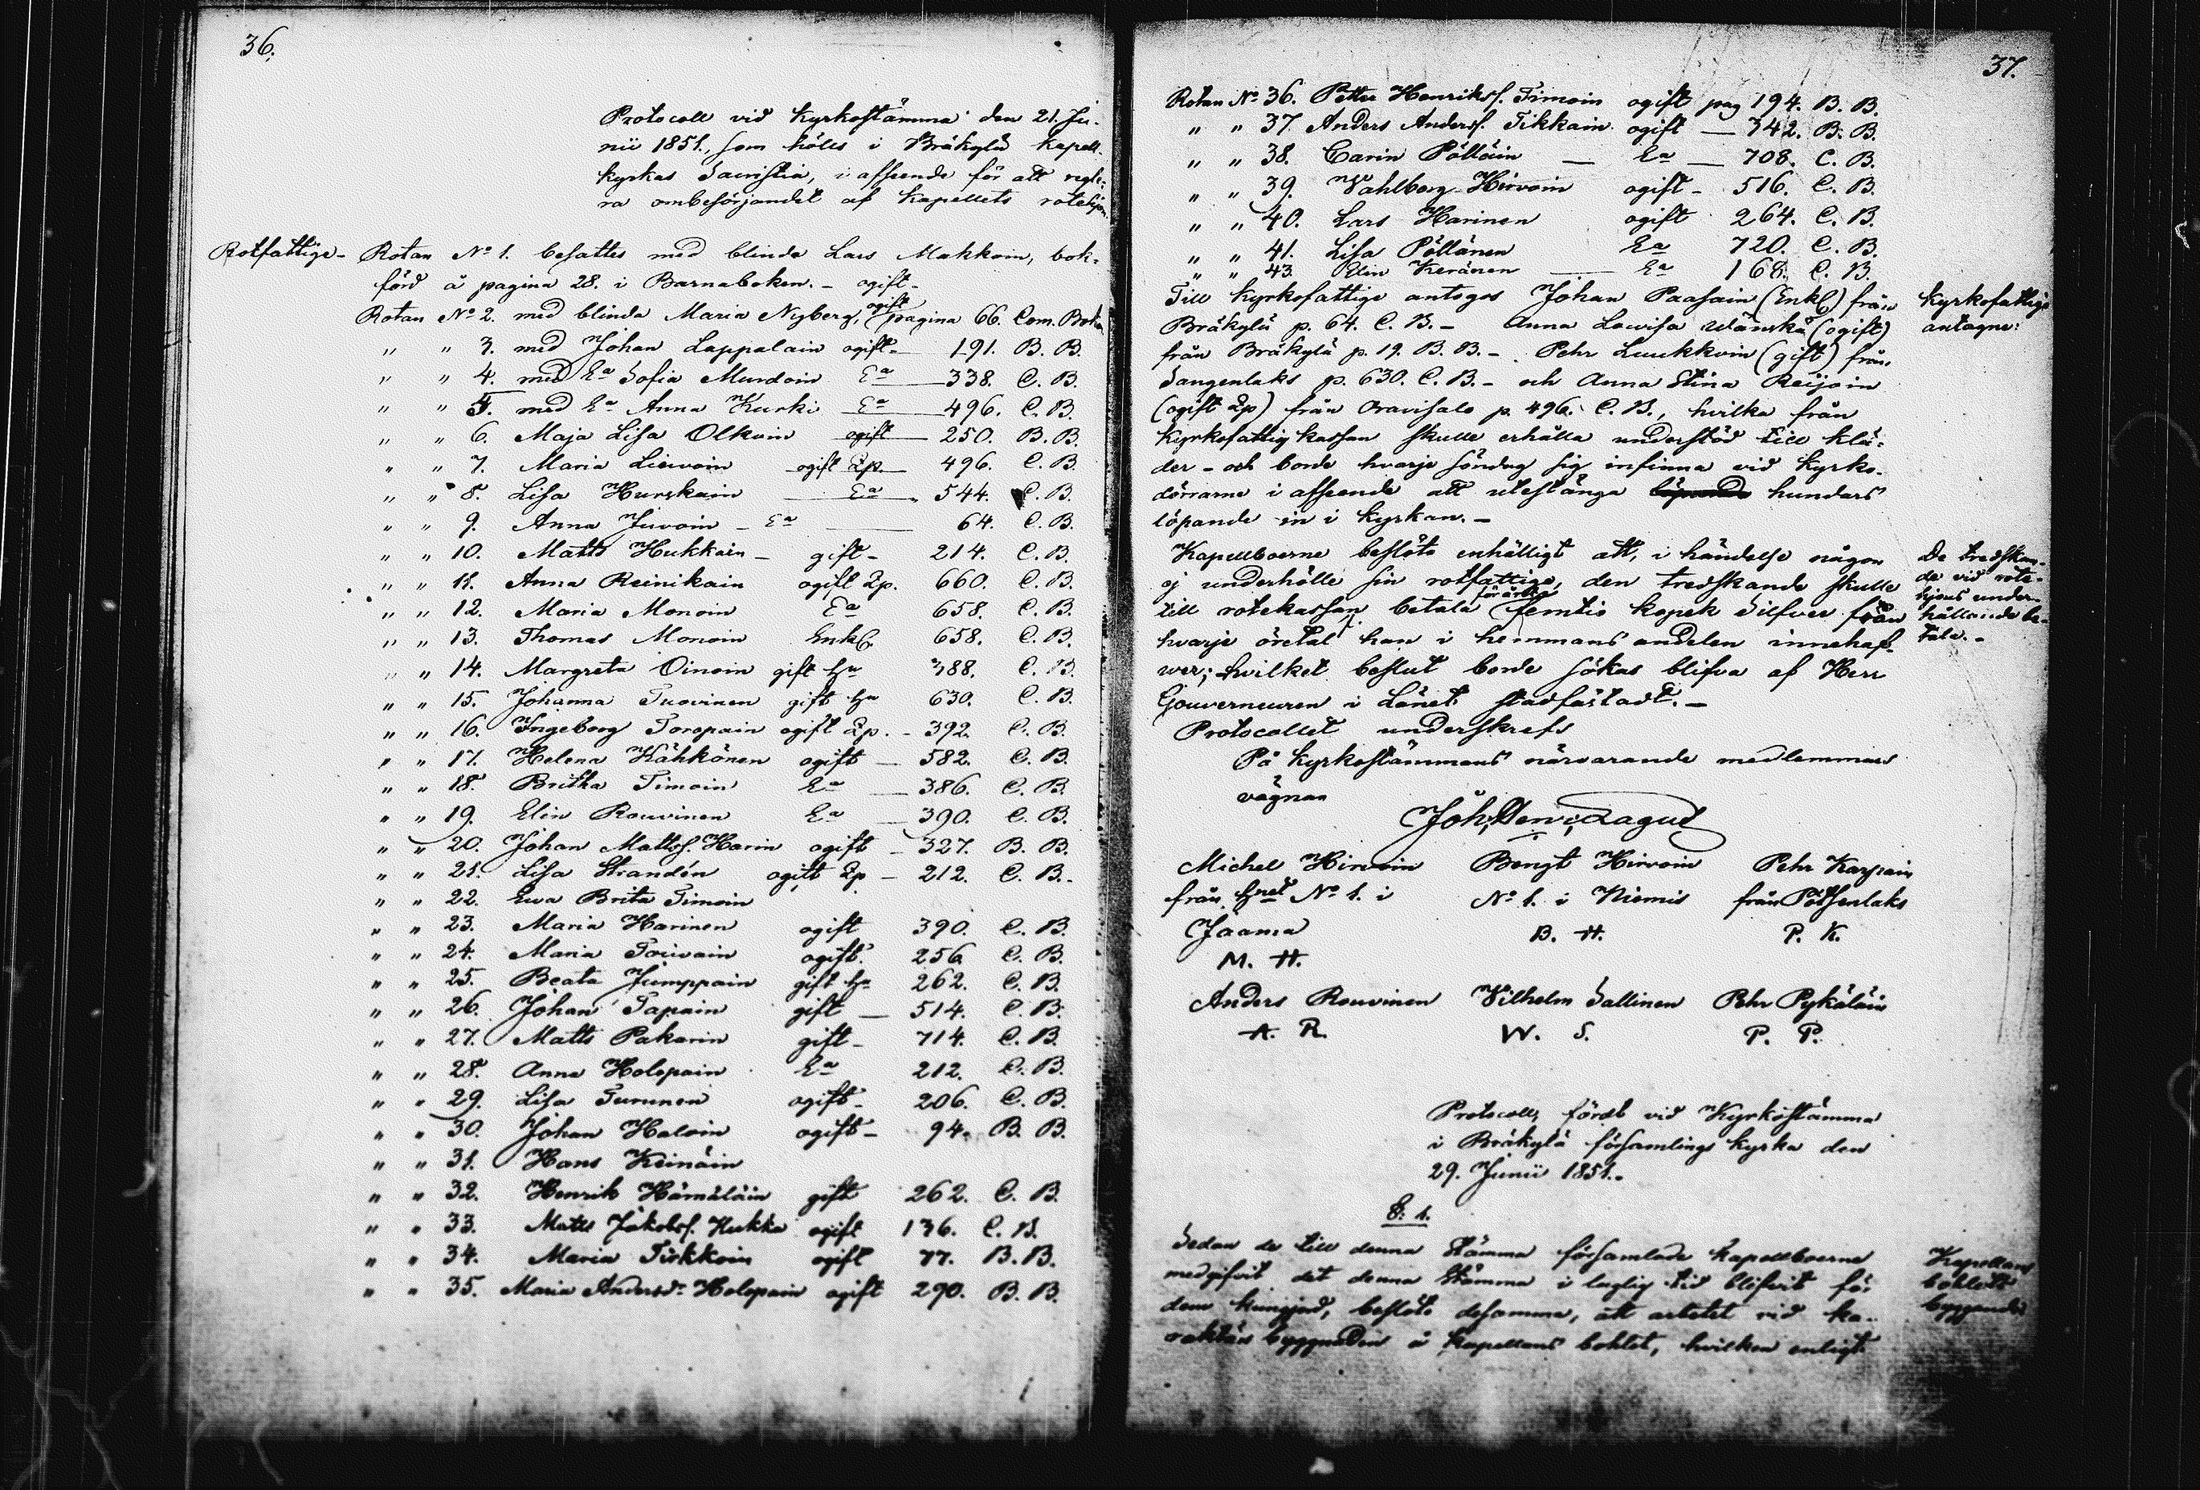 36.
Protocoll vid Kyrkostämma den 21. Ju-
nii 1851., som hölls i Bräkylä kapell-
kyrkas Sacristia, i afseende för att regle-
ra ombesörjandet af Kapellets rotehjon.
Rotfattige- Rotan No 1. besattes med blinda Lars Makkoin, bok-
förd å pagina 28. i Barnaboken. - ogift -
Rotan No 2. med blinda Maria Nyberg, ogift pagina 66. Com. Boken
" " 3. med Johan Lappalain ogift - 191. B. B.
" " 4. med Ea Sofia Murdoin Ea - 338. C. B.
" " 5. med Ea Anna Kurki Ea - 496. C. B.
" " 6. Maja Lisa Olkoin ogift - 250. B. B.
" " 7. Maria Liewoin ogift Qp. - 496. C. B.
" " 8. Lisa Hurskain - Ea - 544. C. B.
" " 9. Anna Juvoin - Ea - 64. C. B.
" " 10. Matts Hukkain - gift - 214. C. B.
" " 11. Anna Reinikain ogift Qp. 660. C. B.
" " 12. Maria Monoin Ea 658. C. B.
" " 13. Thomas Monoin Enkl. 658. C. B.
" " 14. Margreta Oinoin gift hu 388. C. B.
" " 15. Johanna Tuovinen gift hu 630. C. B.
" " 16. Ingeborg Toropain ogift Qp. - 392. C. B.
" " 17. Helena Kähkönen ogift - 582. C. B.
" " 18. Britha Timoin Ea - 386. C. B.
" " 19. Elin Rouvinen Ea - 390. C. B.
" " 20. Johan Mattss. Harin ogift - 327. B. B.
" " 21. Lisa Strandén ogift Qp - 212. C. B.
" " 22. Ewa Brita Timoin
" " 23. Maria Harinen ogift 390. C. B.
" " 24. Maria Toivain ogift. 256 C. B.
" " 25. Beata Jumppain gift hu 262. C. B.
" " 26. Johan Tapain gift - 514. C. B.
" " 27. Matts Pakarin gift - 714. C. B.
" " 28. Anna Holopain Ea 212. C. B.
" " 29. Lisa Turunen ogift - 206. C. B.
" " 30. Johan Haloin ogift - 94. B. B.
" " 31. Hans Keinäin
" " 32. Henrik Hämäläin gift 262. C. B.
" " 33. Matts Jakobss. Hukka ogift 136. C. B.
" " 34. Maria Tirkkoin ogift 77. B. B.
" " 35. Maria Andersdr. Holopain ogift 290. B. B.
37.
Rotan No 36. Petter Henrikss. Timoin ogift pag 194. B. B.
" " 37. Anders Anderss. Tikkain ogift - 342. B. B.
" " 38. Carin Pölläin - Ea - 708. C. B.
" " 39. Wahlborg Hirvoin ogift - 516. C. B.
" " 40. Lars Harinen ogift 264. C. B.
" " 41. Lisa Pöllänen Ea 720. C. B.
" " 43. Elin Keränen - Ea 168. C. B.
Till Kyrkofattige antogos Johan Paasain (Enkl.) från
Bräkylä p. 64. C. B. - Anna Lovisa Wänskä (ogift)
från Bräkylä p. 19. B. B. - Pehr Luukkoin (gift) från
Sangenlaks p. 630. C. B. - och Anna Stina Reijoin
(ogift Qp) från Oravisalo p. 496. C. B., hvilka från
Kyrkofattigkassan skulle erhålla understöd till klä-
der - och borde hvarje söndag sig infinna vid kyrko-
dörrarne i afseende att utestänga löpande hundars
löpande in i kyrkan. -
Kyrkofattige
antagne:
Kapellboerne beslöto enhälligt att, i händelse någon
ej underhölle sin rotfattige, den tredskande skulle
till rotekassan betala för året femtio kopek Silfver från
hvarje öretal han i hemmans andelen innehaf-
wer; hvilket beslut borde sökas blifva af Herr
Gouverneuren i Länet stadfästadt. -
De tredskan-
de vid rote-
hjons under-
hållande be-
tala. -
Protocollet underskrefs
På Kyrkostämmans närvarande medlemmars
vägnar
Joh. Henr. Lagus
Michel Hirvoin Bengt Hirvoin Pehr Karpain
från hnet No 1. i No 1. i Niemis från Pötsenlaks
Jaama B. H. P. K.
M. H.
Anders Rouvinen Wilhelm Sallinen Pehr Pykäläin
A. R. W. S. P. P.
Protocoll, fördt vid Kyrkostämma
i Bräkylä församlings kyrka den
29. Junii 1851.
§. 1.
Sedan de till denna stämma församlade kapellboerne
medgifvit det denna stämma i laglig tid blifvit för
dem kungjord, beslöto desamma, att arbetet vid ka-
raktärs byggnaden å Kapellans bohlet, hvilken enligt
Kapellans
bohlets
byggande